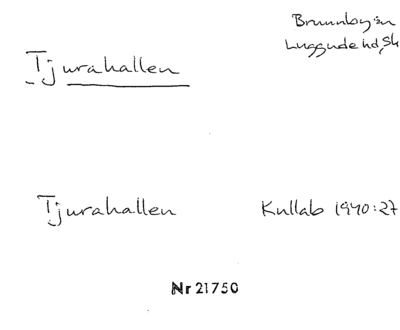 Brunnby sn
Luggude hd, Sk
Tjurahallen
Tjurahallen Kullab 1940:27
Nr 21750